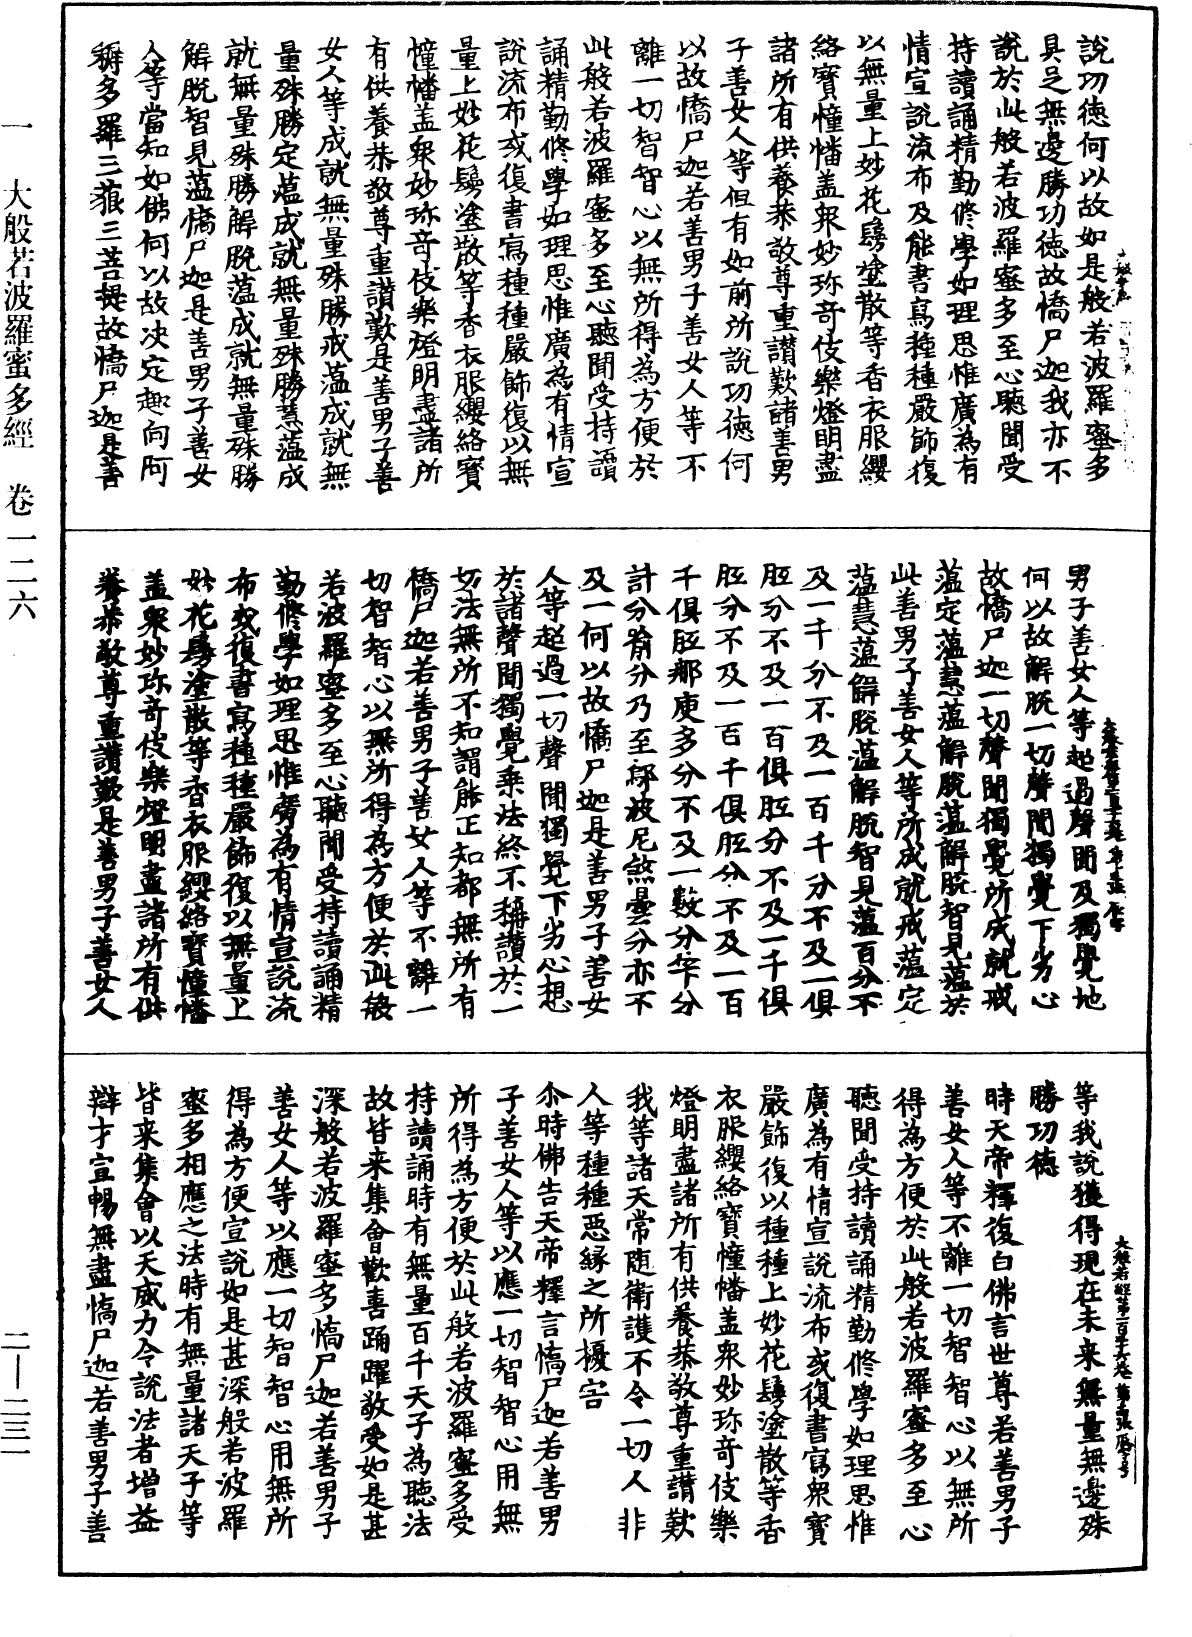 說功德何以故如是般若波羅蜜多
具足無邊勝功德故憍尸迦我亦不
說於此般若波羅蜜多至心聽聞受
持讀誦精勤修學如理思惟廣為有
情宣說流布及能書寫種種嚴飾復
以無量上妙花鬘塗散等香衣服纓
絡寶幢幡盖衆妙珎竒伎樂燈明盡
諸所有供養恭敬尊重讃歎諸善男
子善女人等但有如前所說功德何
以故憍尸迦若善男子善女人等不
離一切智智心以無所得為方便於
此般若波羅蜜多至心聽聞受持讀
誦精勤修學如理思惟廣為有情宣
說流布或復書寫種種嚴飾復以無
量上妙花鬘塗散等香衣服纓絡寶
幢幡盖衆妙珎竒伎樂燈明盡諸所
有供養恭敬尊重讃歎是善男子善
女人等成就無量殊勝戒蕰成就無
量殊勝定蕰成就無量殊勝慧蕰成
就無量殊勝解脫蕰成就無量殊勝
解脫智見蕰憍尸迦是善男子善女
人等當知如佛何以故決定趣向阿
耨多羅三藐三菩提故憍尸迦是善
男子善女人等超過聲聞及獨覺地
何以故解脫一切聲聞獨覺下劣心
故憍尸迦一切聲聞獨覺所成就戒
蕰定蕰慧蕰解脫蕰解脫智見蕰於
此善男子善女人等所成就戒蕰定
蕰慧蕰解脫蕰解脫智見蕰百分不
及一千分不及一百千分不及一俱
胝分不及一百俱胝分不及一千俱
胝分不及一百千俱胝分不及一百
千俱胝那庾多分不及一數分筭分
計分喻分乃至鄔波尼煞曇分亦不
及一何以故憍尸迦是善男子善女
人等超過一切聲聞獨覺下劣心想
於諸聲聞獨覺乘法終不稱讃於一
切法無所不知謂能正知都無所有
憍尸迦若善男子善女人等不離一
切智智心以無所得為方便於此般
若波羅蜜多至心聽聞受持讀誦精
勤修學如理思惟廣為有情宣說流
布或復書寫種種嚴飾復以無量上
妙花鬘塗散等香衣服纓絡寶幢幡
盖衆妙珎竒伎樂燈明盡諸所有供
養恭敬尊重讃歎是善男子善女人
等我說獲得現在未來無量無邊殊
勝功德
時天帝釋復白佛言世尊若善男子
善女人等不離一切智智心以無所
得為方便於此般若波羅蜜多至心
聽聞受持讀誦精勤修學如理思惟
廣為有情宣說流布或復書寫衆寶
嚴飾復以種種上妙花鬘塗散等香
衣服纓絡寶幢幡盖衆妙珎竒伎樂
燈明盡諸所有供養恭敬尊重讃歎
我等諸天常隨衛護不令一切人非
人等種種惡緣之所擾害
尒時佛告天帝釋言憍尸迦若善男
子善女人等以應一切智智心用無
所得為方便於此般若波羅蜜多受
持讀誦時有無量百千天子為聽法
故皆来集會歡喜踊躍敬受如是甚
深般若波羅蜜多憍尸迦若善男子
善女人等以應一切智智心用無所
得為方便宣說如是甚深般若波羅
蜜多相應之法時有無量諸天子等
皆来集會以天威力令說法者增益
辯才宣暢無盡憍尸迦若善男子善
一 大般若波羅蜜多經 卷一二六
二—二三一